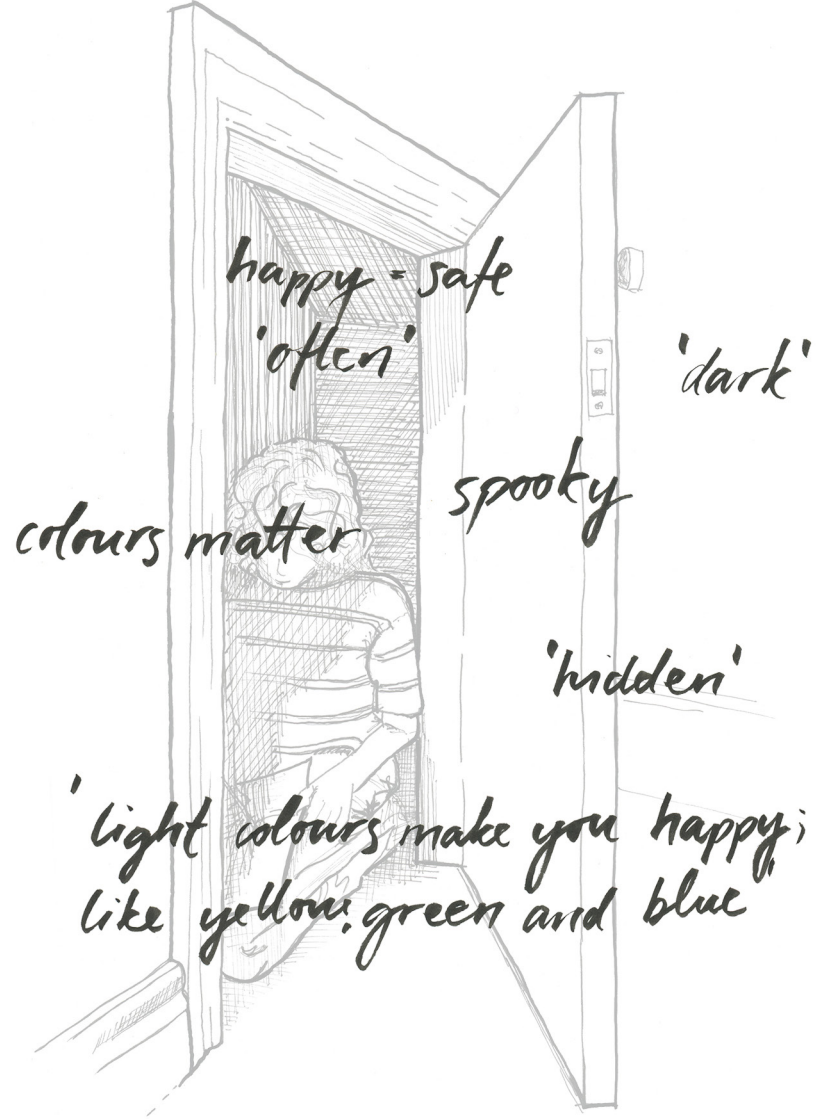 happy = safe
'often'
'dark'
spooky
colours matter
'hidden'
'light colours make you happy;
like yellow, green and blue'